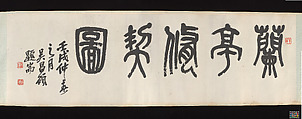 蘭亭修契圖
壬戌仲春
之月
吳昌碩
題耑